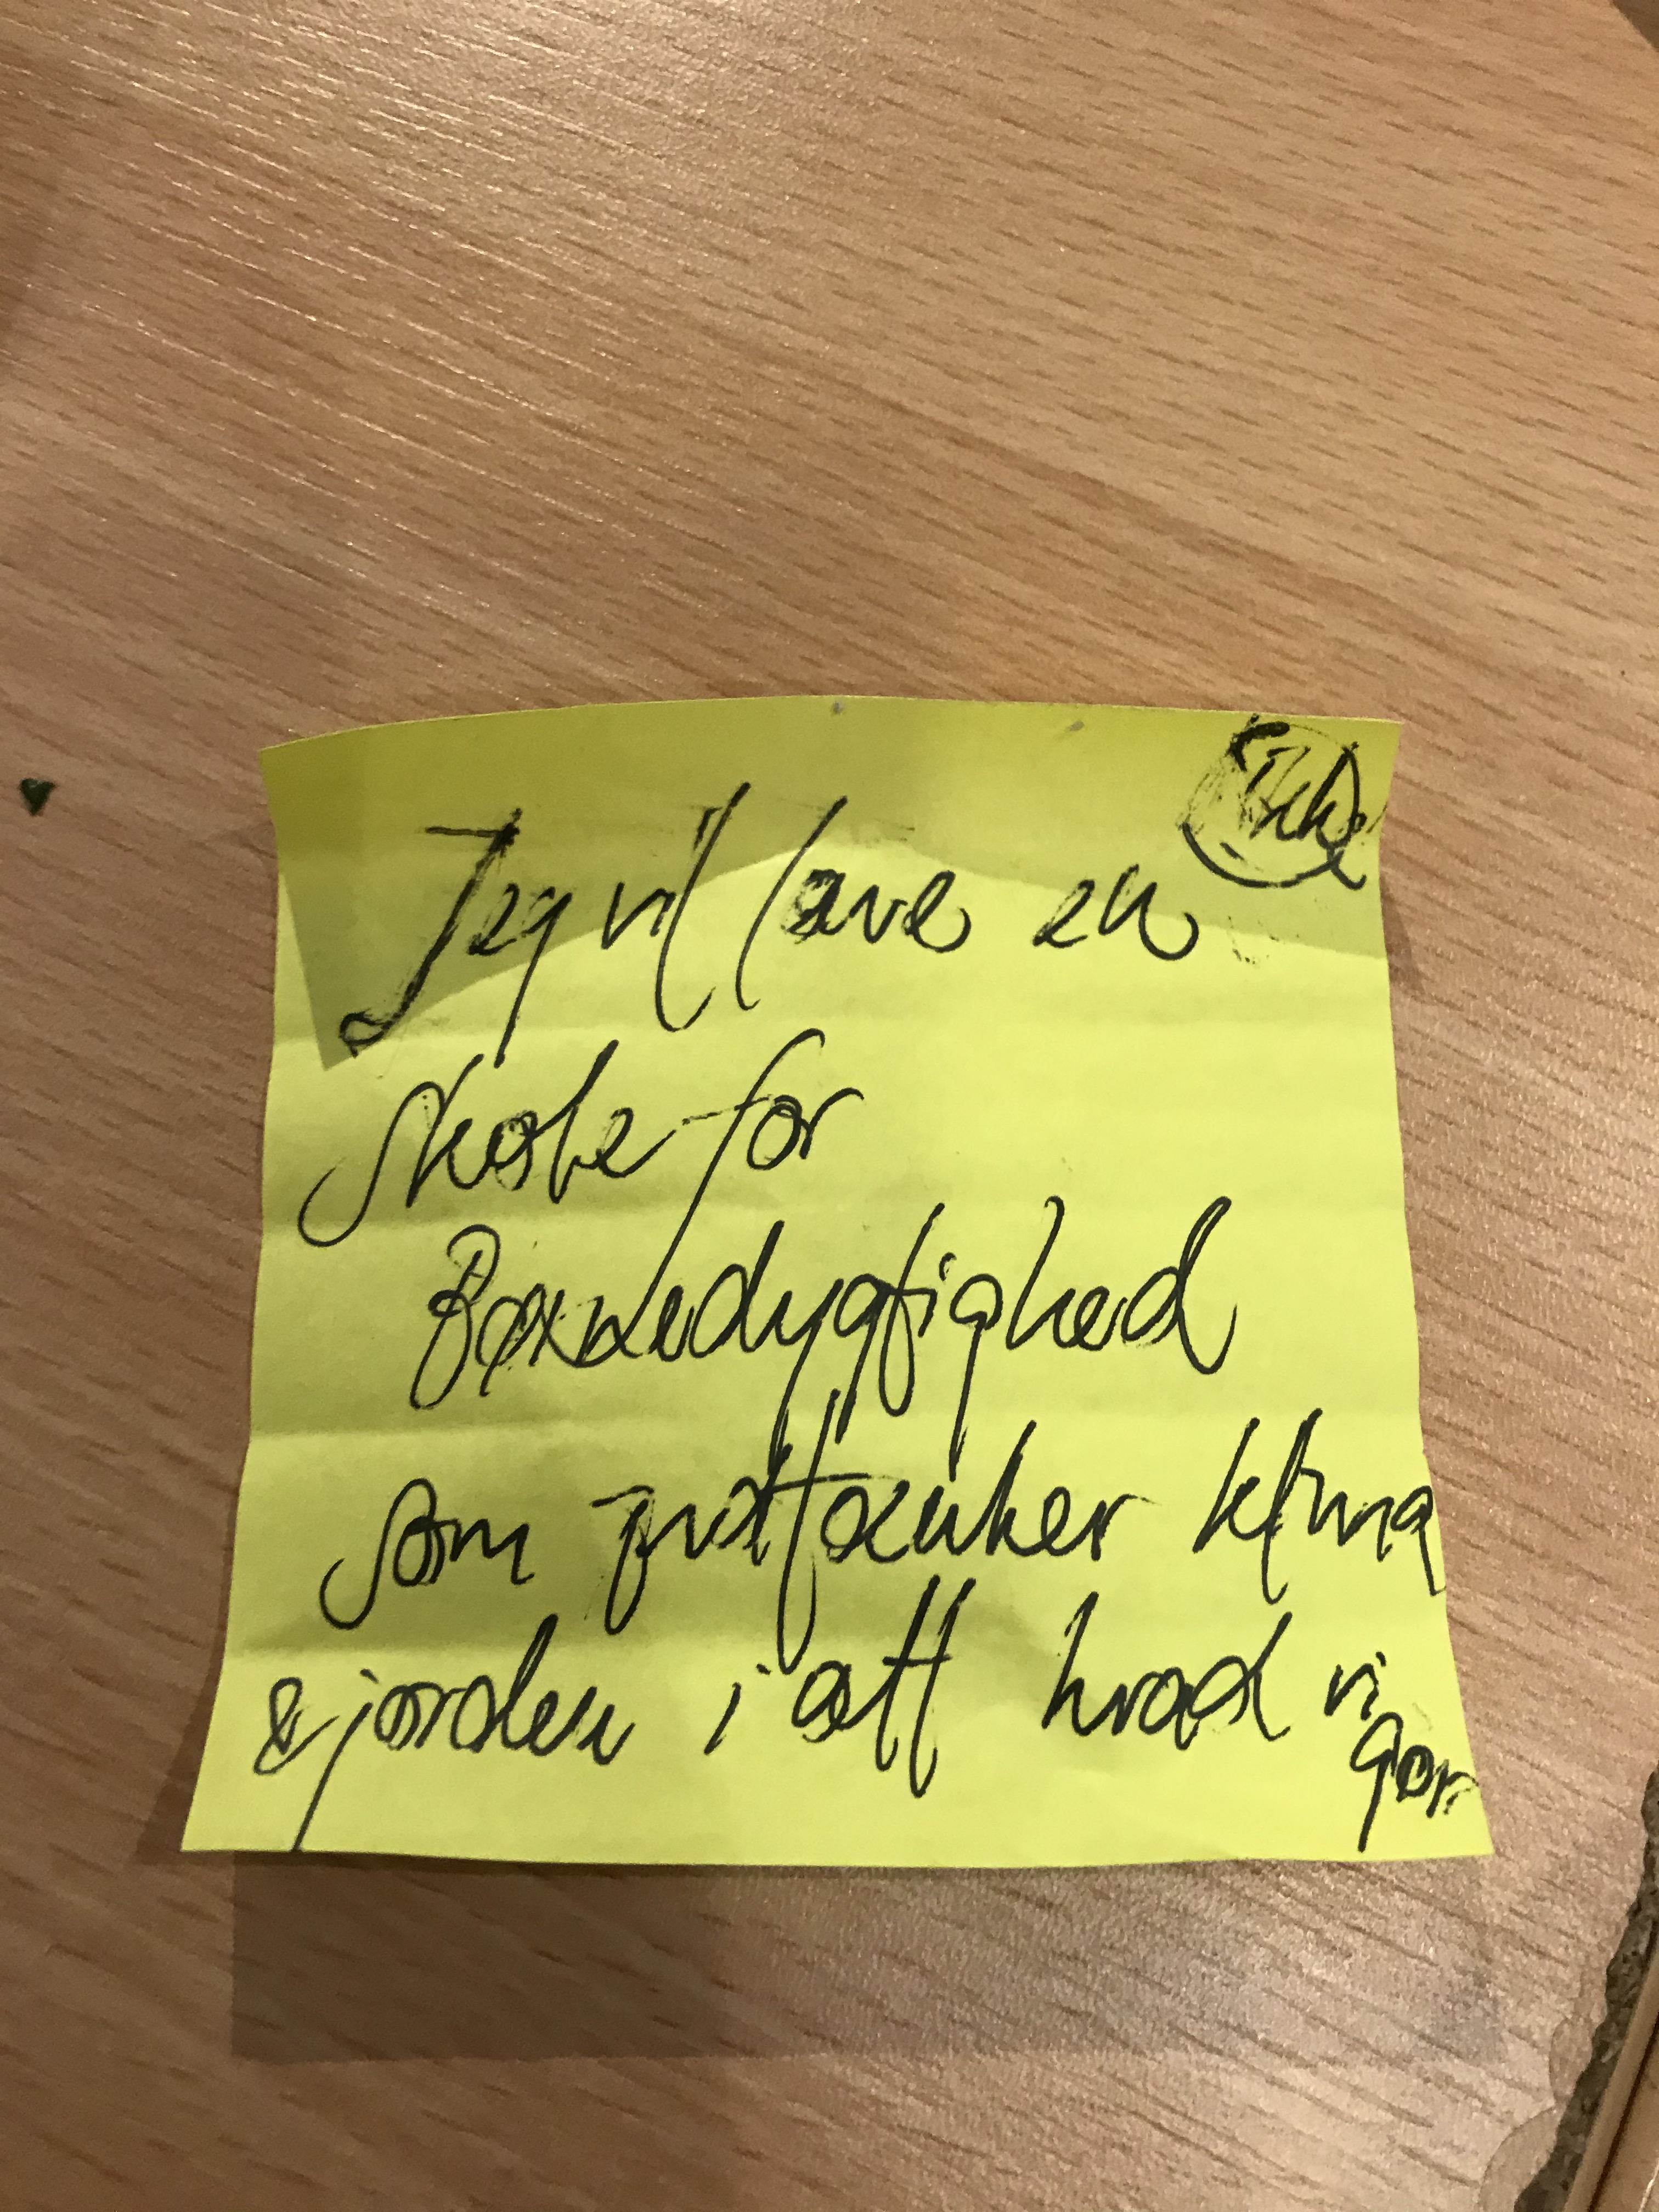 Jeg vil lave en
skole for
Bæredygtighed
som indtænker klima
& jorden i alt hvad vi
gør